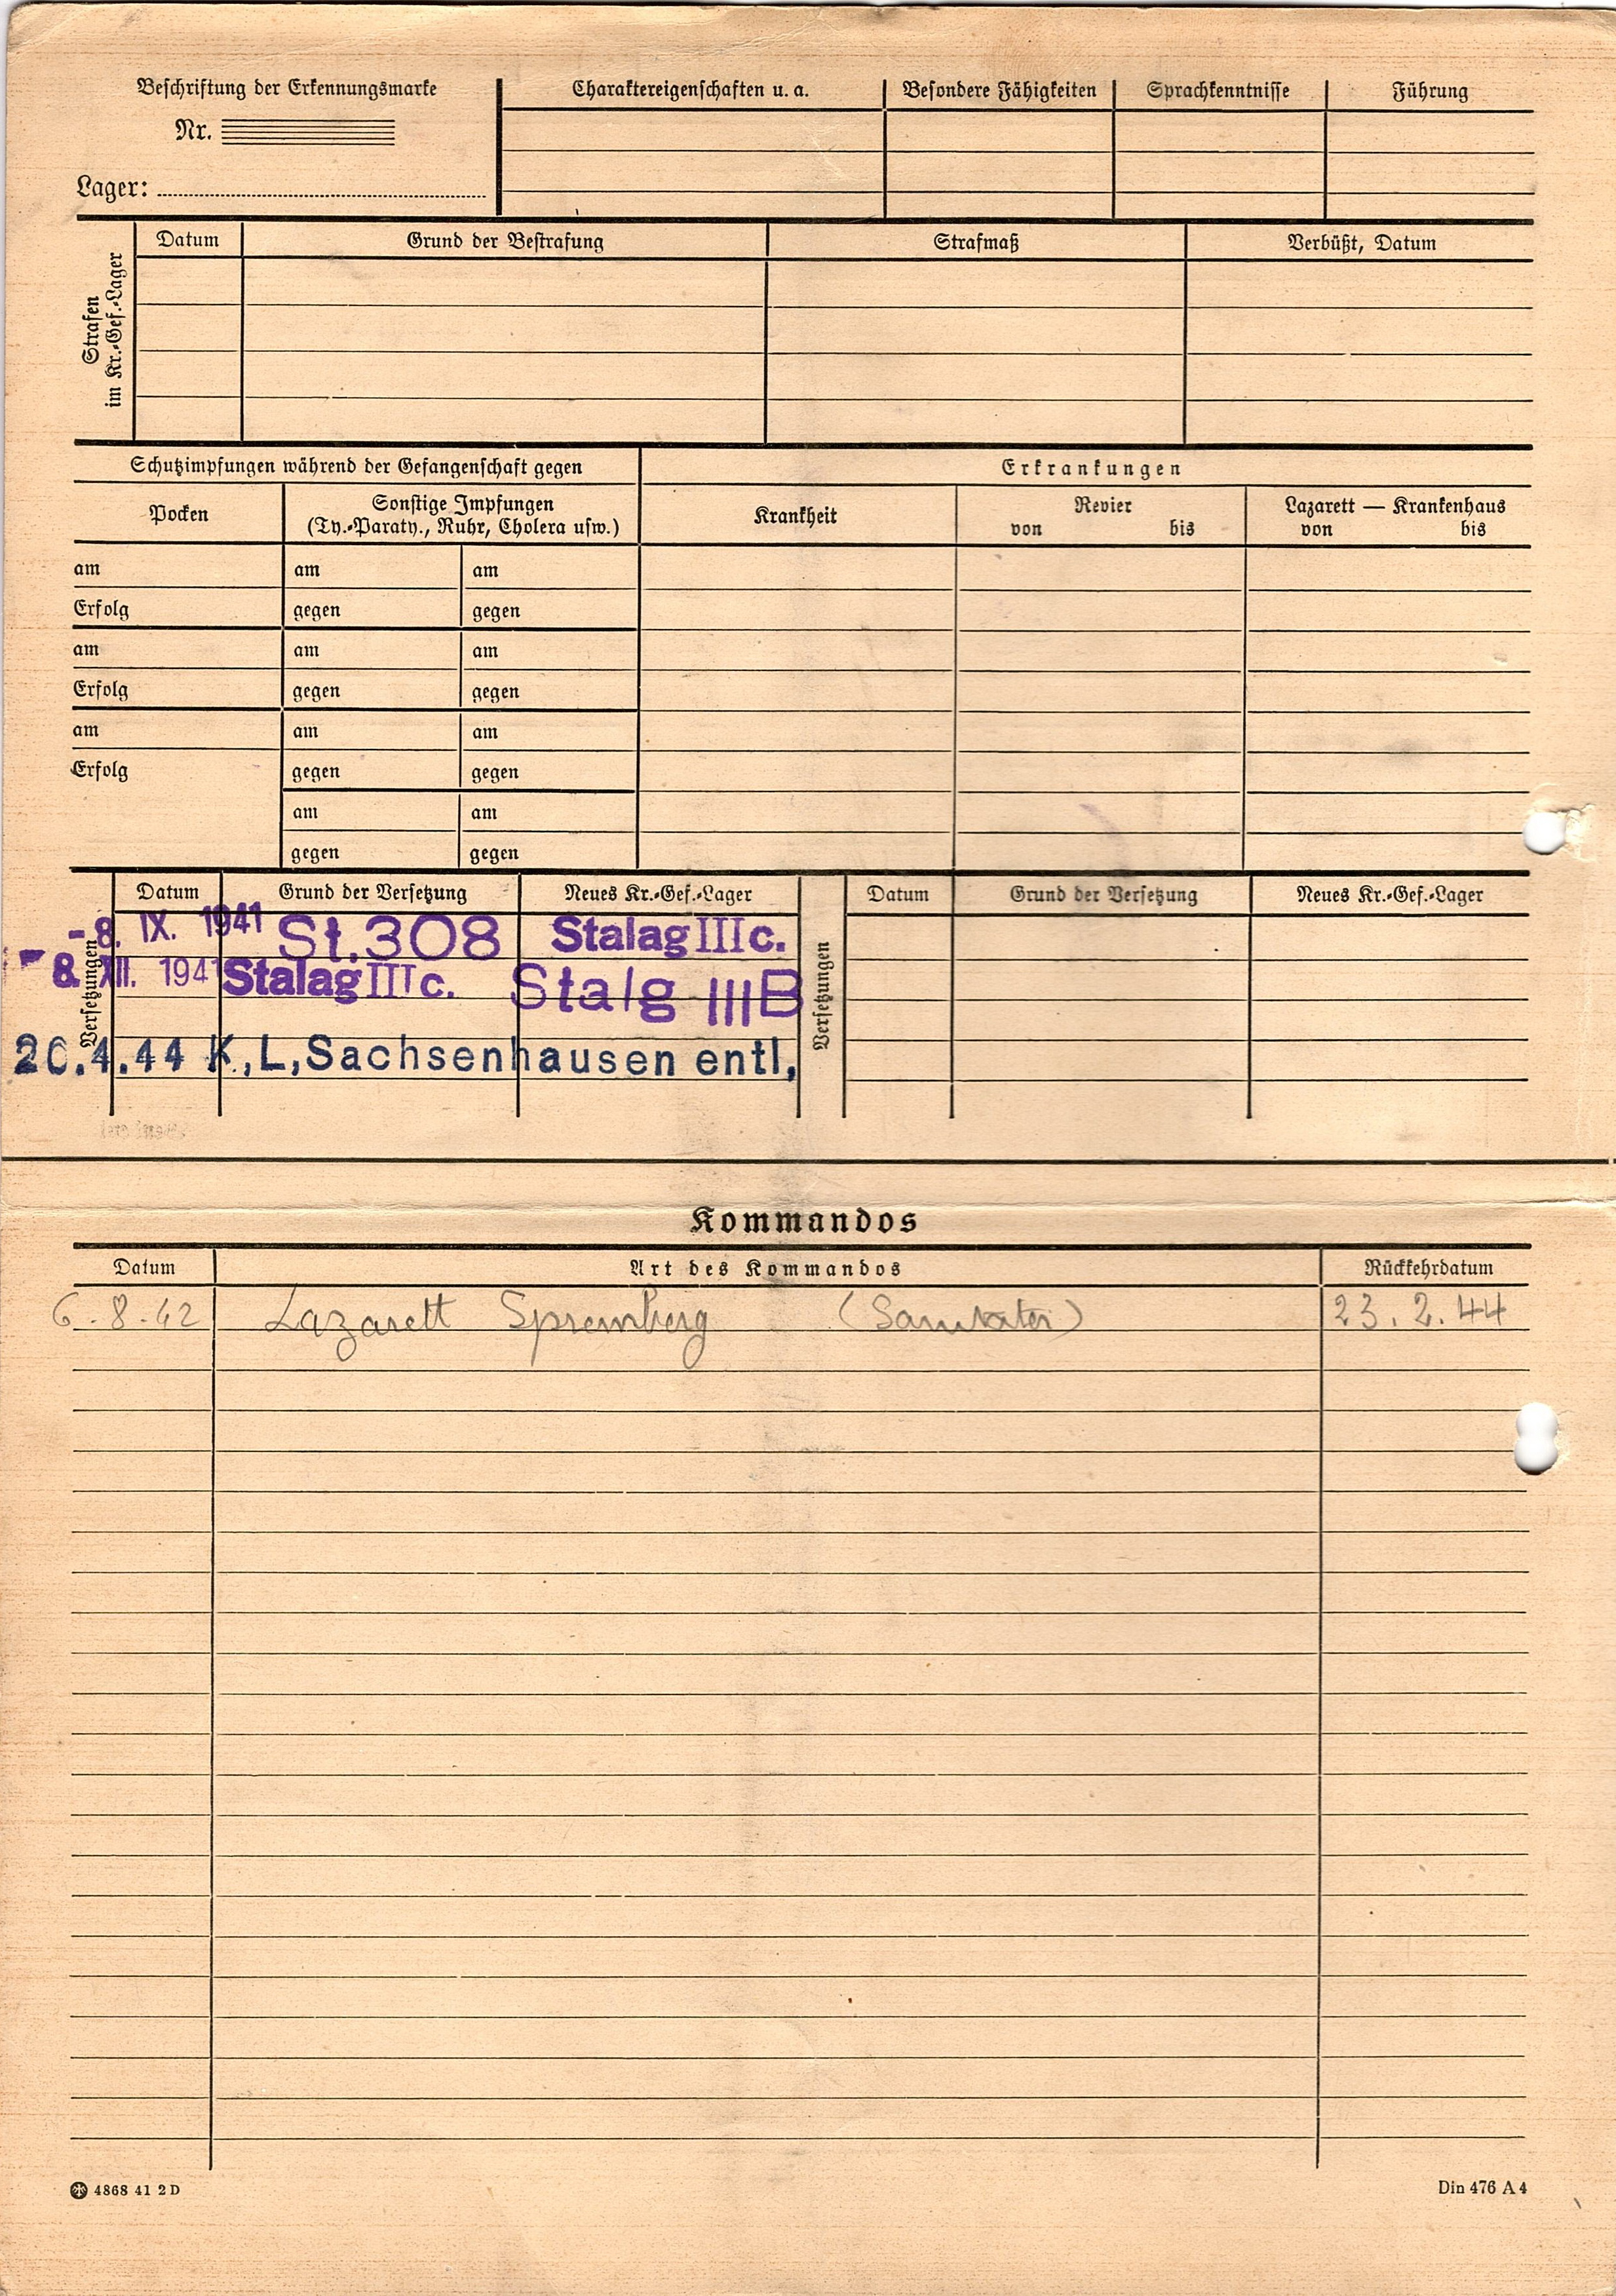 Beschriftung der Erkennungsmarke
Nr.
Lager:
Charaktereigenschaften u. a. Besondere Fähigkeiten Sprachkenntnisse Führung
Strafen
im Kr.-Gef.-Lager
Datum Grund der Bestrafung Strafmaß Verbüßt, Datum
Schutzimpfungen während der Gefangenschaft gegen Erkrankungen
Pocken Sonstige Impfungen
(Ty.-Paraty., Ruhr, Cholera usw.)
Krankheit Revier
von bis
Lazarett — Krankenhaus
von bis
am am am
Erfolg gegen gegen
am am am
Erfolg gegen gegen
am am am
Erfolg gegen gegen
am am
gegen gegen
Versetzungen
Datum Grund der Versetzung Neues Kr.-Gef.-Lager
-8. IX. 1941 St.308 Stalag IIIc.
-8. XII. 1941 Stalag IIIc. Stalg IIIB
20.4.44 K,L,Sachsenhausen entl,
Versetzungen
Datum Grund der Versetzung Neues Kr.-Gef.-Lager
Kommandos
Datum Art des Kommandos Rückkehrdatum
6.8.42 Lazarett Spremberg (Sanitäter) 23.2.44
4868 41 2 D Din 476 A 4